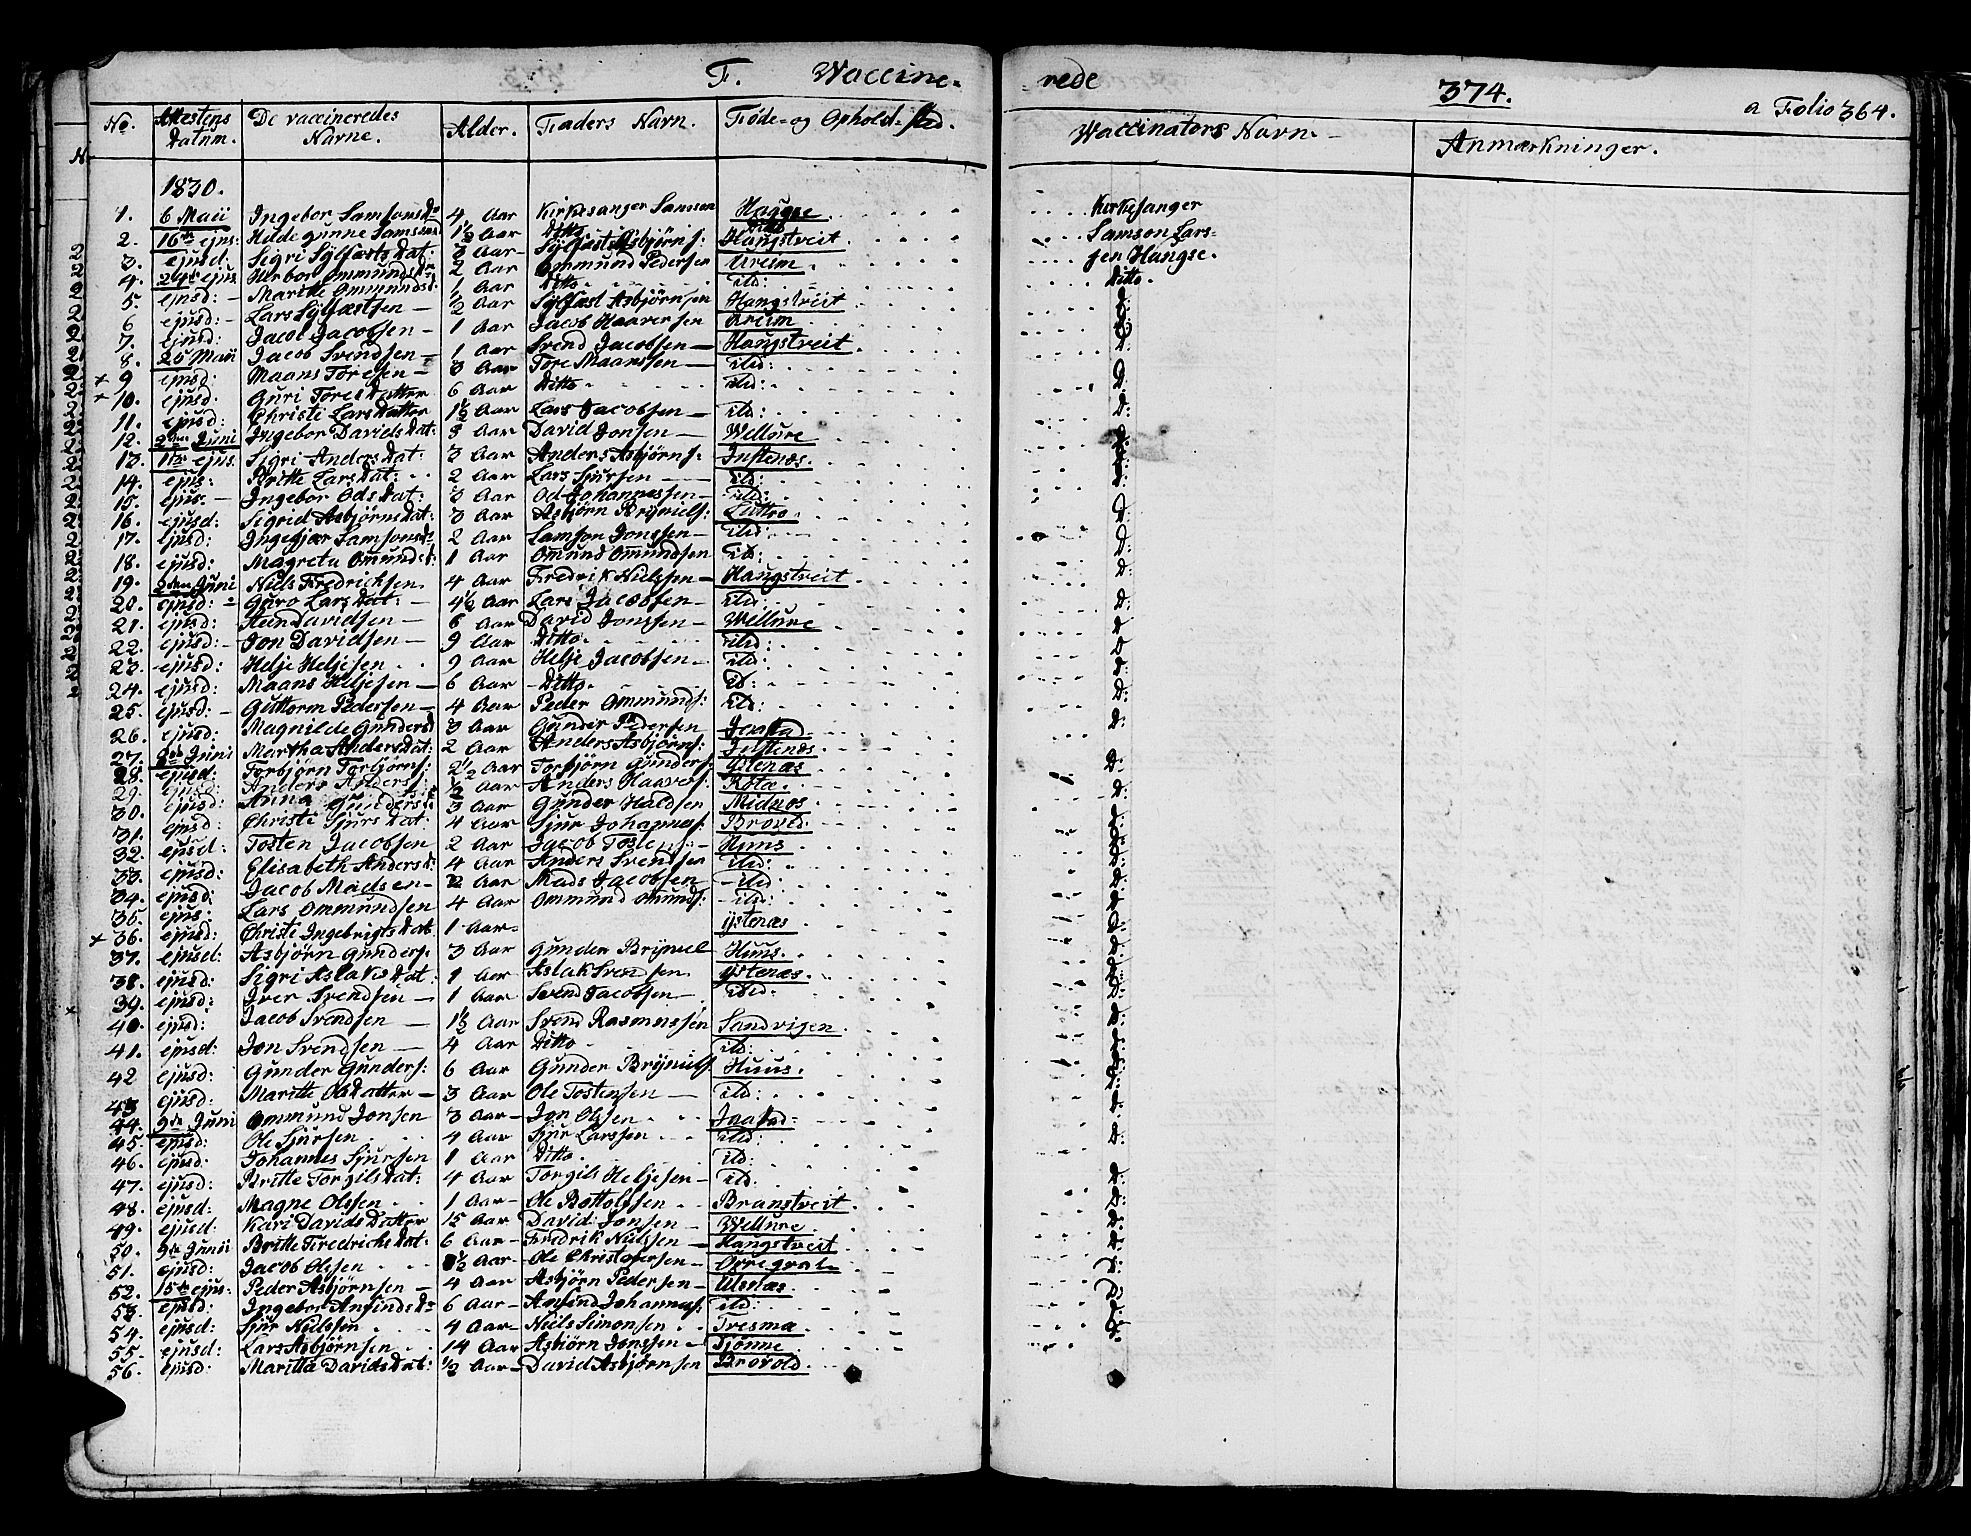 F. Waccine- rede 374. a Folio 364.
No. Attestens Datum. De vaccineredes Navne. Alder. Faders Navn. Føde- og Ophold-sted. Waccinators Navn. Anmærkninger.
1830.
1. 6 Maii Ingebor Samsons D: 4 Aar Kirkesanger Samson Haugse Kirkesanger
2. 16de ejus: Hildegunne Samsons 1½ Aar Ditto Ditto Samson Lars-
3. ejusd: Sigri Sylfæsts Dat: 2 Aar Sylfæst Asbjørns: Haugstveit sen Haugse.
4. 24de ejus Herbor Ommunds D: 2 Aar Ommund Pedersen Areim Ditto.
5. ejusd: Maritte Ommunds: 1 Aar Ditto ild: D:
6. ejusd: Lars Sylfæstsen ½ Aar Sylfæst Asbjørnsen Haugstveit D:
7. ejusd: Jacob Jacobsen 1 Aar Jacob Haaversen Areim D:
8. 25 Maii Jacob Svendsen 1 Aar Svend Jacobsen Haugstveit D:
× 9. ejusd: Maans Toresen 3 Aar Tore Maanssen ild: D:
× 10. ejusd: Guri Tores Datter 6 Aar Ditto ild: D:
11. ejusd: Christi Lars Datter 1½ Aar Lars Jacobsen ild: D:
12. 2den Juni Ingebor Davids Dat: 3 Aar David Jonsen Wellure D:
13. 11te ejus. Sigri Anders Dat: 3 Aar Anders Asbjørns: Instenæs. D:
14. ejus: Britte Lars Dat: 2 Aar Lars Sjursen ild: D:
15. ejus. Ingebor Ods Dat: 3 Aar Od Johannessen ild: D:
16. ejusd: Sigrid Asbjørns Dat: 3 Aar Asbjørn Bryniels: Luttro D:
17. ejusd: Ingegjær Samsons D: 2 Aar Samson Jonssen ild: D:
18. ejusd: Magreta Omunds D: 1 Aar Omund Omundsen ild: D:
19. 2den Juni Niels Fredrichsen 4 Aar Fredrik Nielssen Haugstveit D:
20. ejusd: Guro Lars Dat: 4½ Aar Lars Jacobsen ild: D:
21. ejusd: Sten Davidsen 6 Aar David Jonssen Wellure D:
22. ejusd: Jon Davidsen 9 Aar Ditto ild: D:
23. ejusd: Helje Heljesen 9 Aar Helje Jacobsen ild: D:
24. ejusd: Maans Heljesen 6 Aar Ditto id: D:
25. ejusd: Guttorm Pedersen 4 Aar Peder Ommunds: ild: D:
26. ejusd: Magnilde Gunders D 3 Aar Gunder Pedersen Jaastad D:
27. 9de Juni Martha Anders Dat: 2 Aar Anders Asbjørns: Instenæs D:
28. ejusd: Torbjørn Torbjørns: 2½ Aar Torbjørn Gunders: Ystenæs D:
29. ejusd: Anders Anders: ½ Aar Anders Haavers: Kota D:
30. ejusd: Anna Gunders: 3 Aar Gunder Haldsen Midnæs D:
31. ejusd: Christi Sjurs Dat: 4 Aar Sjur Johannes: Brovold D:
32. ejusd: Tosten Jacobsen 2 Aar Jacob Tostens: Huus D:
33. ejusd: Elisabeth Anders D: 4 Aar Anders Svendsen ild: D:
34. ejusd: Jacob Madsen 2 Aar Mads Jacobsen ild: D:
35. ejus: Lars Ommundsen 4 Aar Ommund Omunds: ild: D:
× 36. ejusd: Christi Ingebrigts Dat 1 Aar ystenæs D:
37. ejusd: Asbjørn Gunders: 3 Aar Gunder Bryniel Huus. D:
38. ejusd: Sigri Aslaks Dat: 1 Aar Aslak Svendsen ystenæs. D:
39. ejusd: Iver Svendsen 1 Aar Svend Jacobsen ild: D:
40. ejusd: Jacob Svendsen 1½ Aar Svend Rasmussen Sandvigen D:
41. ejusd: Jon Svendsen 4 Aar Ditto ild: D:
42 ejusd: Gunder Gunders: 6 Aar Gunder Brynils: Huus. D:
43 ejusd: Maritte Ols Datter 3 Aar Ole Tostensen ild: D:
44. 9de Juni Ommund Jonsen 3 Aar Jon Olssen Jaastad D:
45. ejusd: Ole Sjursen 4 Aar Sjur Larssen ild: D:
46. ejusd: Johannes Sjursen 1 Aar Ditto ild:
47. ejusd: Britte Torgils Dat: 4 Aar Torgils Heljesen ild: D:
48. ejusd: Magne Olssen 1 Aar Ole Bottolfsen Branstveit D:
49. ejusd: Kari Davids Datter 15 Aar David Jonsen Wellure D:
50. 9de Junii Britte Fredrichs Dat: 6 Aar Fredrik Nielssen Haugstveit D:
51. ejusd: Jacob Olssen ½ Aar Ole Christophersen Orregrav D:
52. 15de ejus: Peder Asbjørnsen 4 Aar Asbjørn Pedersen Ulsnæs D:
53. ejusd: Ingebor Ansinds D: 6 Aar Ansind Johannes: ild: D:
54. ejusd: Sjur Nielssen 4 Aar Niels Simonsen Tresma D:
55. ejusd: Lars Asbjørnsen 14 Aar Asbjørn Jonssen Tjønne D:
56. ejusd: Maritta Davids Dat: ½ Aar David Asbjørnsen Brovold